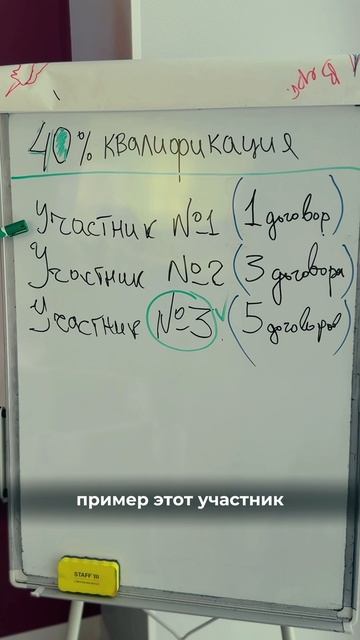 40% квалификация
Участник №1 (1 договор)
Участник №2 (3 договора)
Участник №3 (5 договоров)
пример этот участник
STAFF